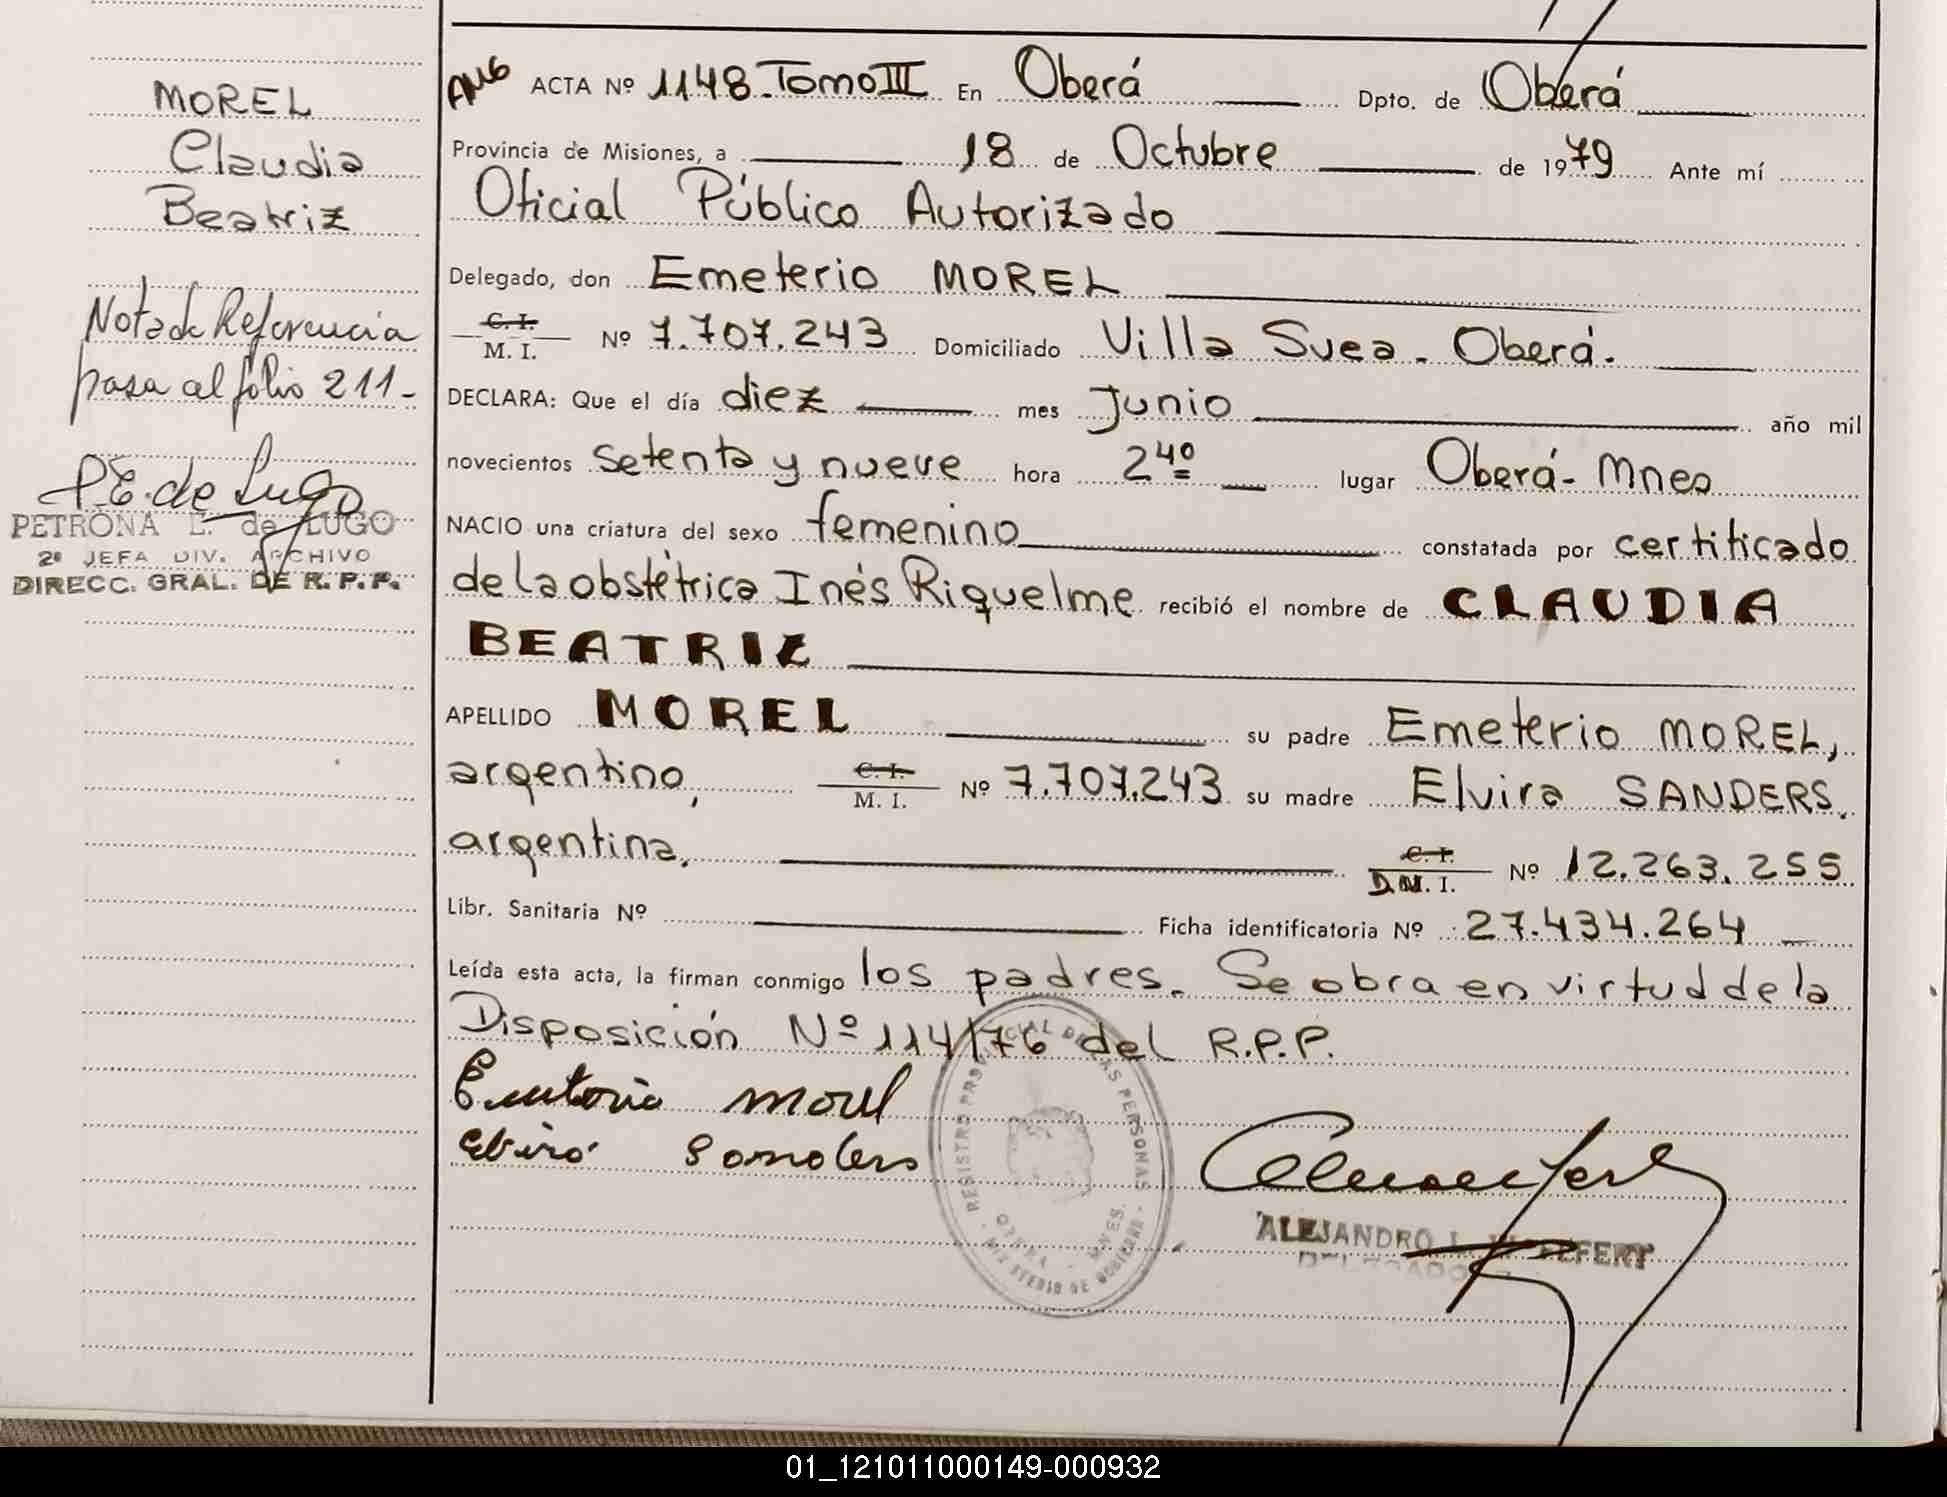 MOREL
Claudia
Beatriz
Nota de Referencia
pasa al folio 211-
P.E. de Lugo
PETRONA E. de LUGO
2º JEFA DIV. ARCHIVO
DIRECC. GRAL. DE R.P.P.
ACTA Nº 1148. Tomo III En Oberá Dpto. de Oberá
Provincia de Misiones, a 18 de Octubre de 1979 Ante mí
Oficial Público Autorizado
Delegado, don Emeterio MOREL
C. I.
M. I. Nº 7.707.243 Domiciliado Villa Svea - Oberá.
DECLARA: Que el día diez mes Junio año mil
novecientos setenta y nueve hora 24º lugar Oberá - Mnes
NACIO una criatura del sexo femenino constatada por certificado
de la obstétrica Inés Riquelme recibió el nombre de CLAUDIA
BEATRIZ
APELLIDO MOREL su padre Emeterio MOREL,
argentino, C. I.
M. I. Nº 7.707.243 su madre Elvira SANDERS,
argentina, C. I.
D.N. I. Nº 12.263.255
Libr. Sanitaria Nº Ficha identificatoria Nº 27.434.264
Leída esta acta, la firman conmigo los padres. Se obra en virtud de la
Disposición Nº 114/76 del R.P.P.
Emeterio Morel
Elvira Sanders
REGISTRO PROVINCIAL DE LAS PERSONAS
OBERA - MNES.
MINISTERIO DE GOBIERNO
ALEJANDRO L.
DELEGADO
01_121011000149-000932